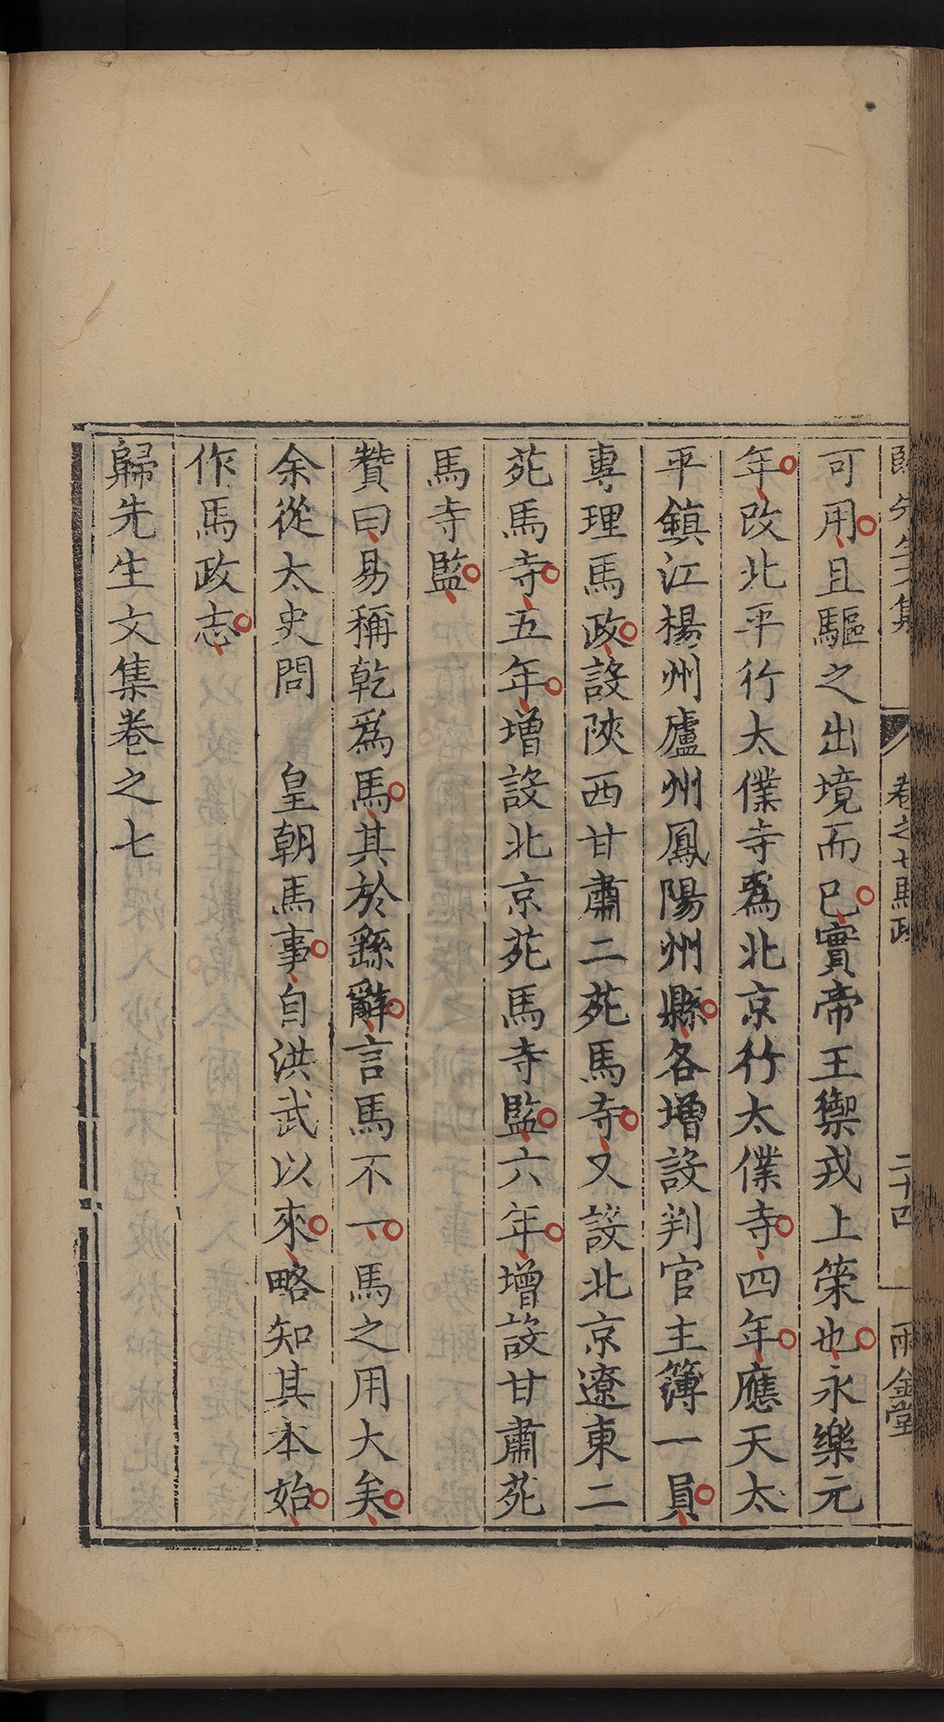 歸先生文集
卷之七馬政
二十四
雨金堂
可用且驅之出境而已實帝王禦戎上策也永樂元
年改北平行太僕寺爲北京行太僕寺四年應天太
平鎮江楊州廬州鳳陽州縣各增設判官主簿一員
專理馬政設陝西甘肅二苑馬寺又設北京遼東二
苑馬寺五年增設北京苑馬寺監六年增設甘肅苑
馬寺監
贊曰易稱乾爲馬其於繇辭言馬不一馬之用大矣
余從太史問　皇朝馬事自洪武以來略知其本始
作馬政志
歸先生文集卷之七